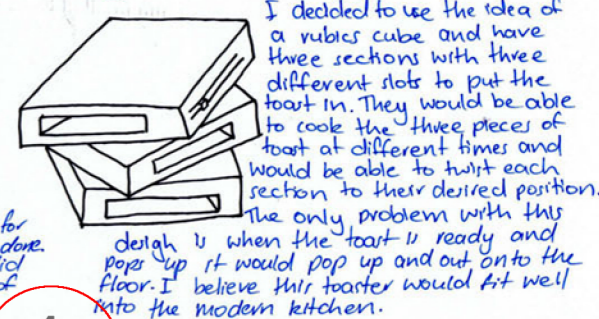 I decided to use the idea of
a rubics cube and have
three sections with three
different slots to put the
toast in. They would be able
to cook the three pieces of
toast at different times and
would be able to twist each
section to their desired position.
The only problem with this
design is when the toast is ready and
pops up it would pop up and out onto the
floor. I believe this toaster would fit well
into the modern kitchen.
for
done.
of